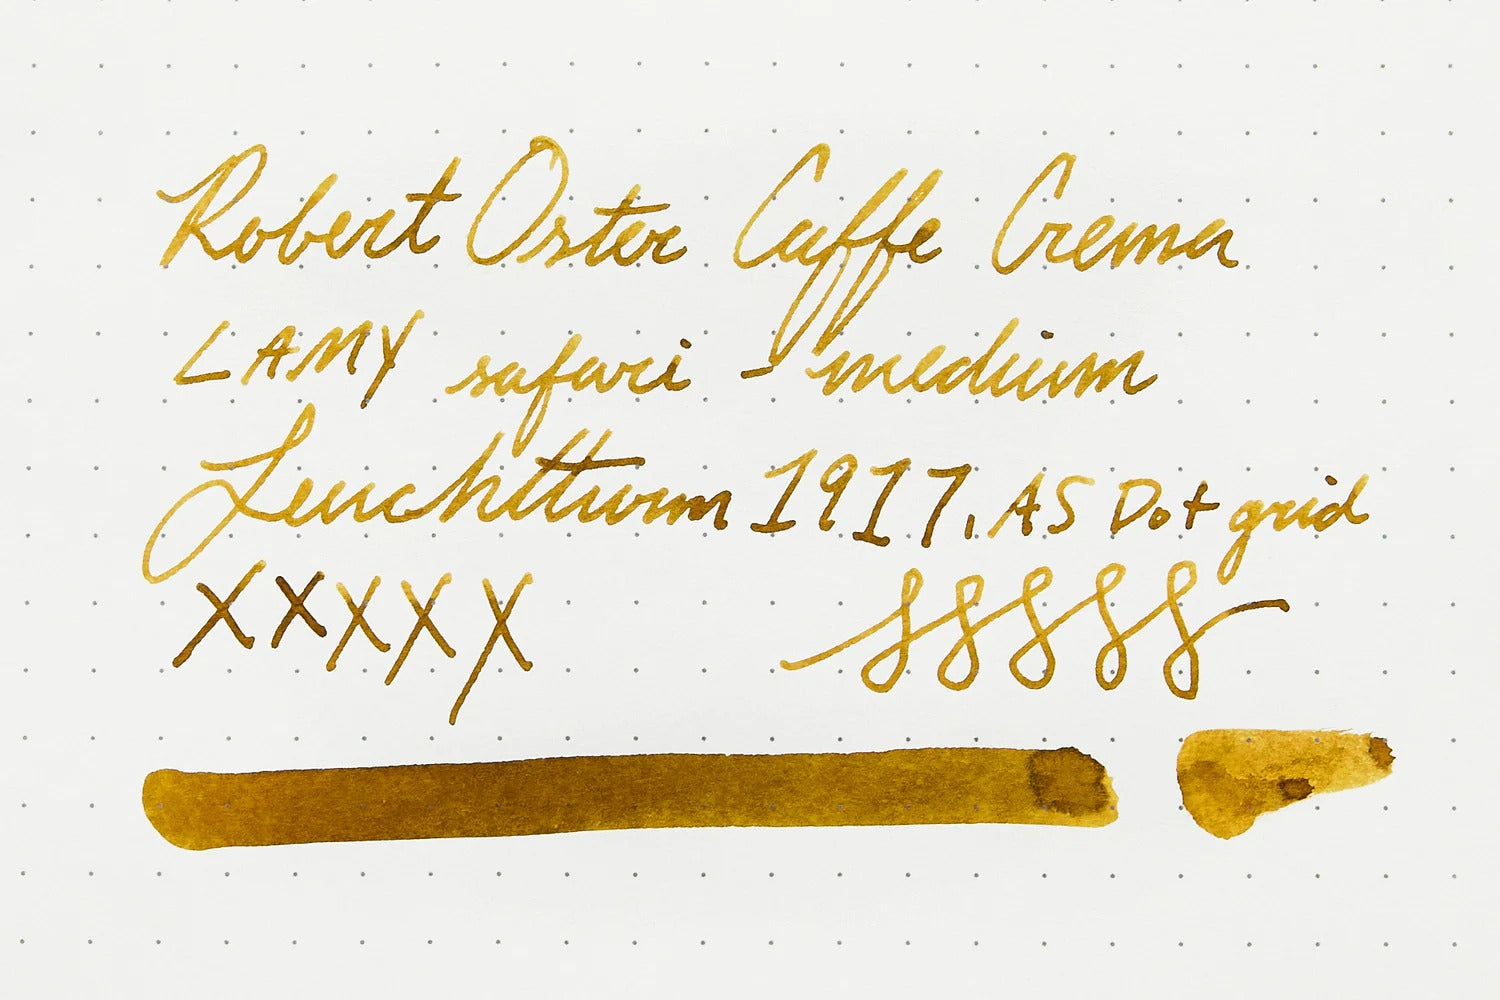 Robert Oster Caffe Crema
LAMY safari - medium
Leuchtturm 1917, A5 Dot grid
XXXXX